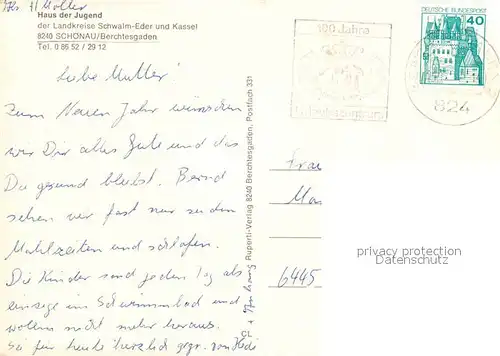 Haus der Jugend
der Landkreise Schwalm-Eder und Kassel
8240 SCHÖNAU/Berchtesgaden
Tel. 0 86 52 / 29 12
Liebe Mutter!
Zum Neuen Jahr wünschen
wir Dir alles Gute und das
Du gesund bleibst. Bernd
sehen wir fast nur zu den
Mahlzeiten und schlafen.
Die Kinder sind jeden Tag als
einzige im Schwimmbad und
wollen nicht mehr heraus.
Sei für heute herzlich gegr. von Hedi
Ruperti-Verlag 8240 Berchtesgaden, Postfach 331
100 Jahre
DEUTSCHE BUNDESPOST
40
824
Frau
6445
privacy protection
Datenschutz